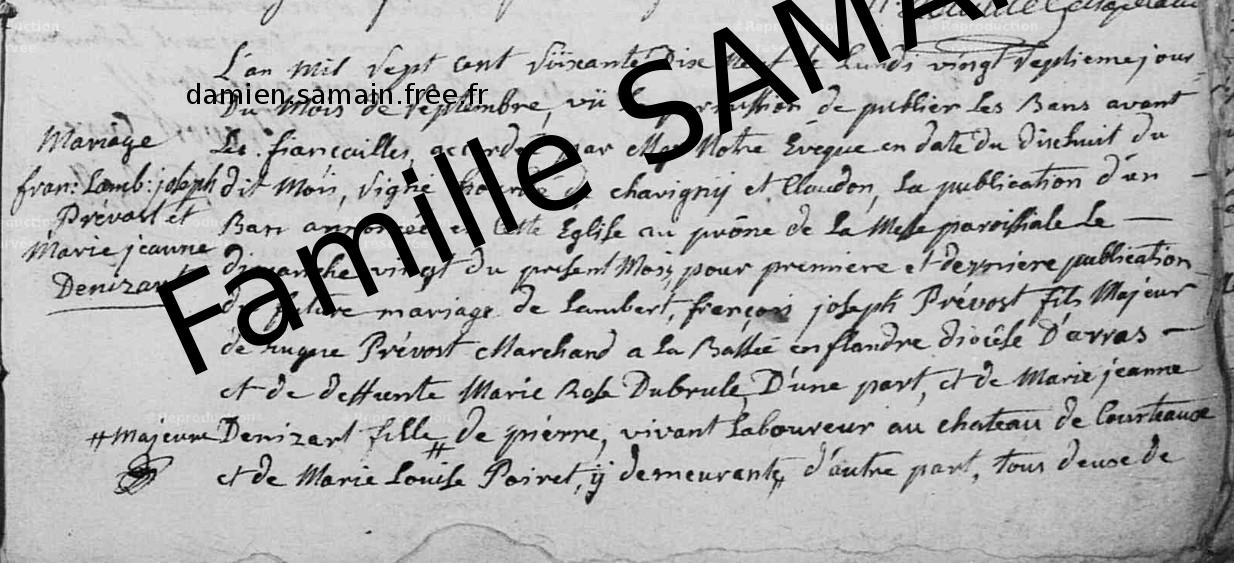 L'an mil sept cent soixante dix neuf le Lundi vingt septieme jour
damien.samain.free.fr
Du Mois de septembre, vû la permission de publier les Bans avant
Famille SAMA
Mariage
Les fiancailles, accordée par Mgr Notre Eveque en date du dixhuit du
fran: Lamb: joseph
dit Mois, signé de chavignij et Claudon, La publication d'un
Prévost et
Ban annoncée en cette Eglise au prône de La Messe paroissiale Le
Marie jeanne
dimanche vingt du present Mois, pour premiere et derniere publication
Denizart
du future mariage de Lambert, françois joseph Prévost fils Majeur
de Prévost Marchand a La Bassée en flandre diocèse D'arras
et de deffunte Marie Rose Dubrule, D'une part, et de Marie jeanne
# Majeure
Denizart fille # de pierre, vivant Laboureur au chateau de Courteaux
et de Marie Louise Poiret, ij demeurante, d'autre part, tous deux de